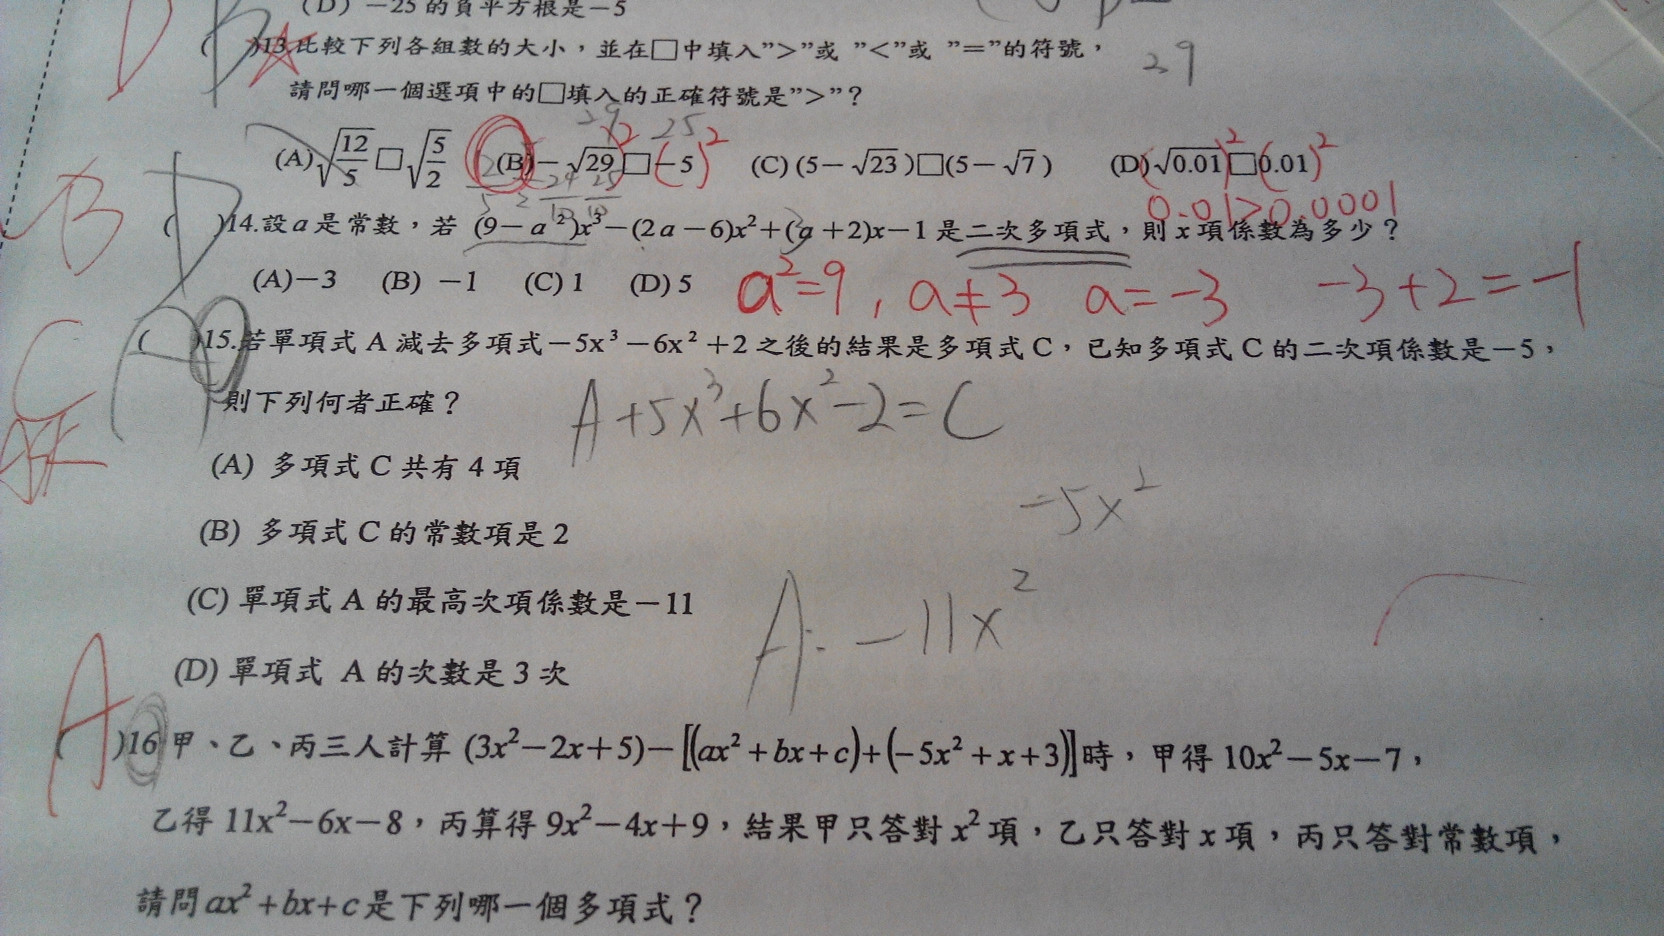 (D) －25 的負平方根是－5
( )13.比較下列各組數的大小，並在□中填入”>”或 ”<”或 ”=”的符號，
29
請問哪一個選項中的□填入的正確符號是”>”？
29 25
(A) √(12/5) □ √(5/2) (B) －√29 □ －5 (C) (5－√23)□(5－√7) (D) √0.01 □ 0.01
0.01>0.0001
( )14.設 a 是常數，若 (9－a²)x³－(2a－6)x²＋(a＋2)x－1 是二次多項式，則 x 項係數為多少？
(A)－3 (B) －1 (C) 1 (D) 5
a²=9 , a≠3 a=－3 －3+2=－1
( )15.若單項式 A 減去多項式－5x³－6x²＋2 之後的結果是多項式 C，已知多項式 C 的二次項係數是－5，
則下列何者正確？
A+5x³+6x²－2=C
(A) 多項式 C 共有 4 項
－5x²
(B) 多項式 C 的常數項是 2
(C) 單項式 A 的最高次項係數是－11
A=－11x²
(D) 單項式 A 的次數是 3 次
A
( )16 甲、乙、丙三人計算 (3x²－2x＋5)－[(ax²＋bx＋c)＋(－5x²＋x＋3)]時，甲得 10x²－5x－7，
乙得 11x²－6x－8，丙算得 9x²－4x＋9，結果甲只答對 x² 項，乙只答對 x 項，丙只答對常數項，
請問 ax²＋bx＋c 是下列哪一個多項式？